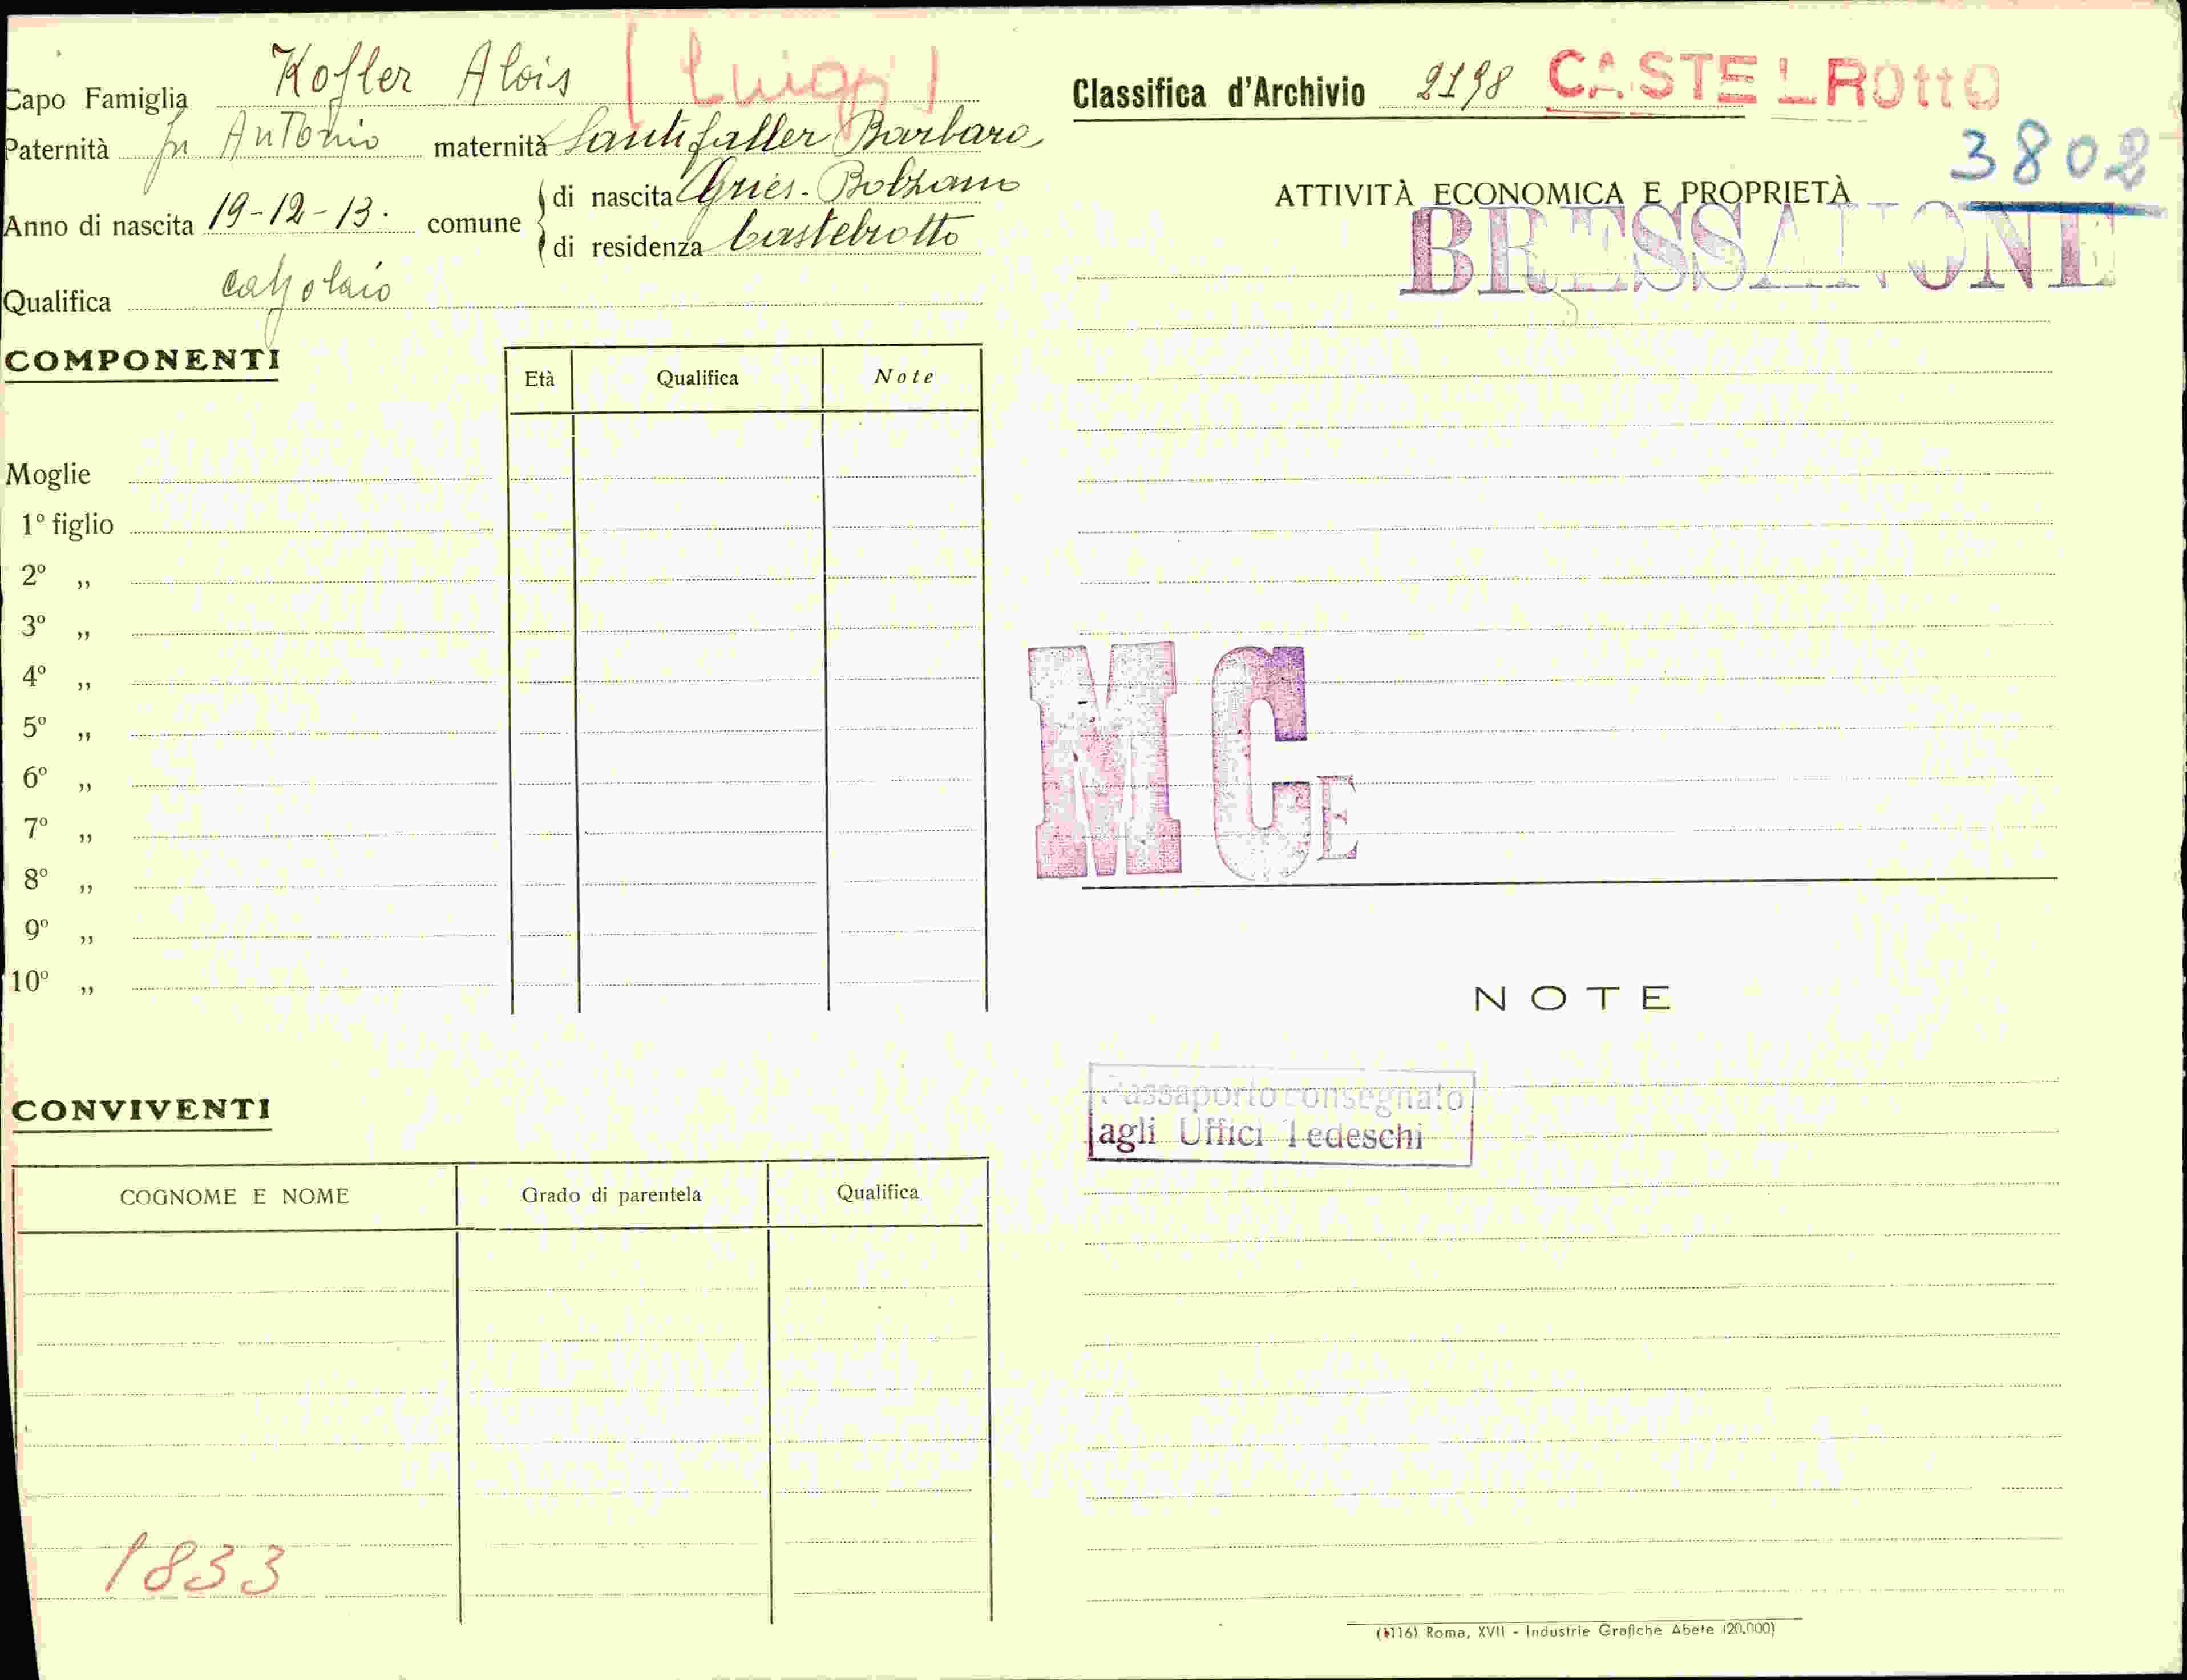 Capo Famiglia Kofler Alois (Luigi)
Paternità fu Antonio maternità Santifaller Barbara
Anno di nascita 19-12-13. comune di nascita Gries-Bolzano
di residenza Castelrotto
Qualifica calzolaio
COMPONENTI
Età Qualifica Note
Moglie
1º figlio
2º „
3º „
4º „
5º „
6º „
7º „
8º „
9º „
10º „
CONVIVENTI
COGNOME E NOME Grado di parentela Qualifica
1833
Classifica d'Archivio 2198 CASTELROTTO
3802
ATTIVITÀ ECONOMICA E PROPRIETÀ
BRESSANONE
MCE
NOTE
Passaporto consegnato
agli Uffici Tedeschi
Roma, XVII - Industrie Grafiche Abete (20.000)